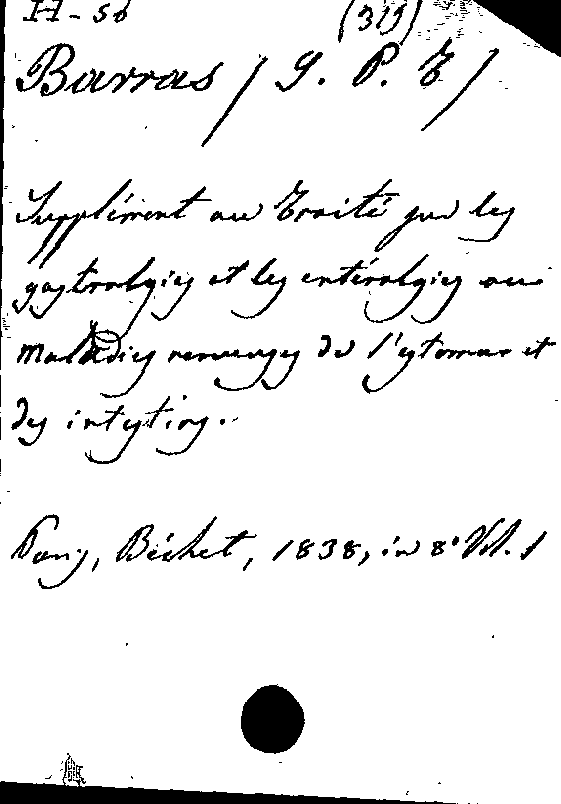 H-56 (319)
Barras / J. P. T /
Supplément au Traité sur les
gastralgies et les entéralgies ou
maladies nerveuses de l'estomac et
des intestins.
Paris, Béchet, 1838, in 8° Vol. 1